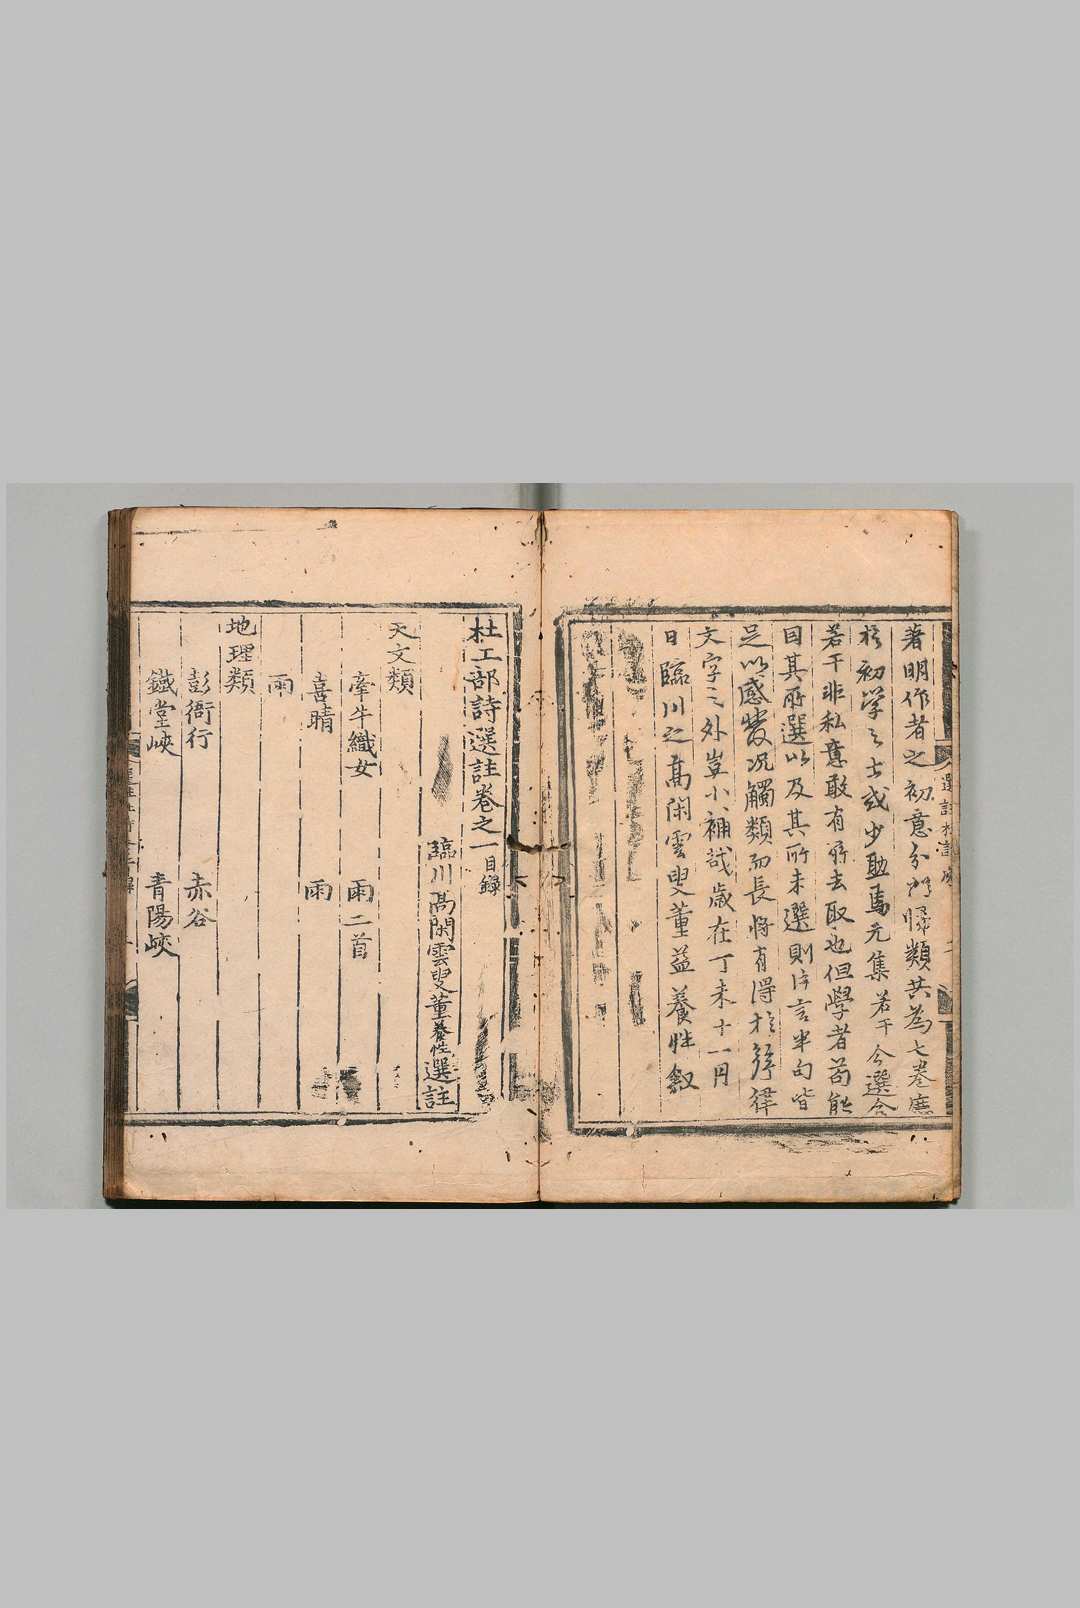 著明作者之初意分門歸類共為七卷庶
於初學之士或少助焉元集若干今選合
若干非私意敢有所去取也但學者苟能
因其所選以及其所未選則片言半句皆
足以感發况觸類而長將有得於聲律
文字之外豈小補哉歲在丁未十一月
日臨川之髙閑雲叟董益養性敘
杜工部詩選註卷之一目錄
臨川髙閑雲叟董養性選註
天文類
牽牛織女 雨二首
喜晴 雨
雨
地理類
彭衙行 赤谷
鐵堂峽 青陽峽